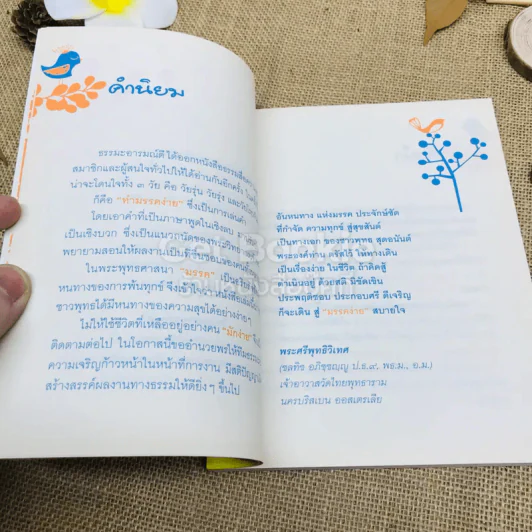 คำนิยม
ธรรมะอารมณ์ดี ได้ออกหนังสือธรรม
สมาชิกและผู้สนใจทั่วไปให้ได้อ่านกันอีกครั้ง
น่าจะโดนใจทั้ง ๓ วัย คือ วัยรุ่น วัยรุ่ง และ
ก็คือ "ทำมรรคง่าย" ซึ่งเป็นการเล่นคำ
โดยเอาคำที่เป็นภาษาพูดในเชิงลบ
เป็นเชิงบวก ซึ่งเป็นแนวถนัดของพระวิทยา
พยายามสอนให้ผลงานเป็นที่ชื่นชอบของคน
ในพระพุทธศาสนา "มรรค" เป็น
หนทางของการพ้นทุกข์ จึงเข้าใจ
ชาวพุทธได้มีหนทางของความสุขได้อย่างง่ายๆ
ไม่ให้ใช้ชีวิตที่เหลืออยู่อย่างคน "มักง่าย"
ติดตามต่อไป ในโอกาสนี้ขออำนวยพรให้ทีม
ความเจริญก้าวหน้าในหน้าที่การงาน มีสติปัญญา
สร้างสรรค์ผลงานทางธรรมให้ดียิ่งๆ ขึ้นไป
อันหนทาง แห่งมรรค ประจักษ์ชัด
ที่กำจัด ความทุกข์ สู่สุขสันต์
เป็นทางเอก ของชาวพุทธ สุดอนันต์
พระองค์ท่าน ตรัสไว้ ให้ทางเดิน
เป็นเรื่องง่าย ในชีวิต ถ้าคิดสู้
ดำเนินอยู่ ด้วยสติ มิขัดเขิน
ประพฤติชอบ ประกอบศรี ดีเจริญ
ก็จะเดิน สู่ "มรรคง่าย" สบายใจ
พระศรีพุทธิวิเทศ
(ชลทิช อภิชชฺญฺญู ป.ธ.๙, พธ.ม., อ.ม.)
เจ้าอาวาสวัดไทยพุทธาราม
นครบริสเบน ออสเตรเลีย